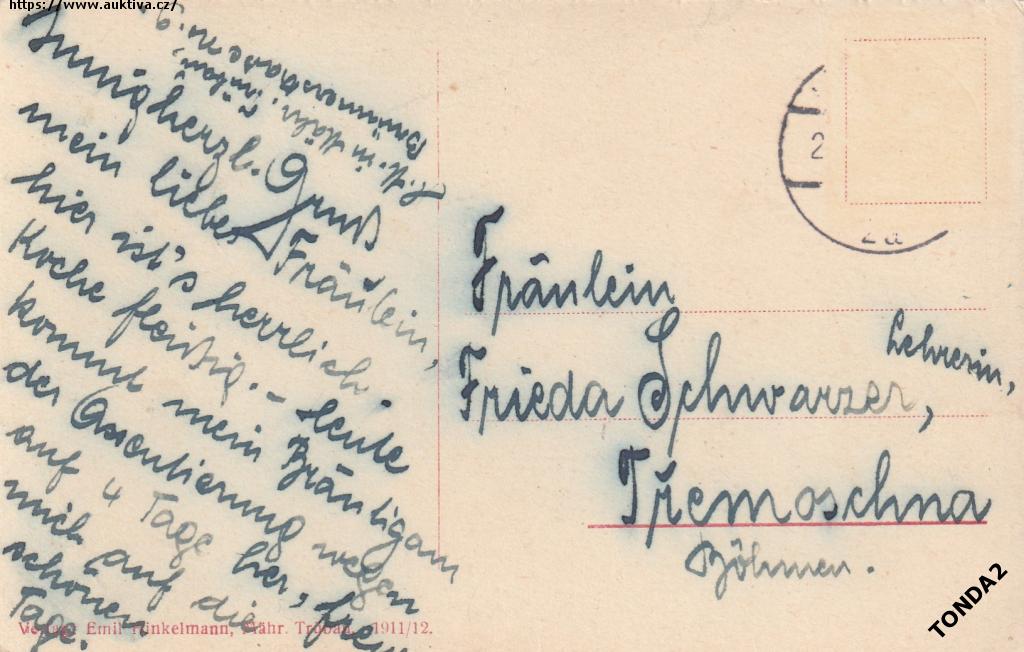 https://www.auktiva.cz/
Innigherzl. Gruß
mein liebes Fräulein,
hier ist's herrlich
Koche fleißig. – Heute
kommt mein Bräutigam
der Assentierung wegen
auf 4 Tage her, freu
mich auf die
schönen
Tage.
Fräulein
Frieda Schwarzer,
Lehrerin,
Třemoschna
Böhmen.
2
Verlag: Emil Hinkelmann, Mähr. Trübau. 1911/12.
TONDA2